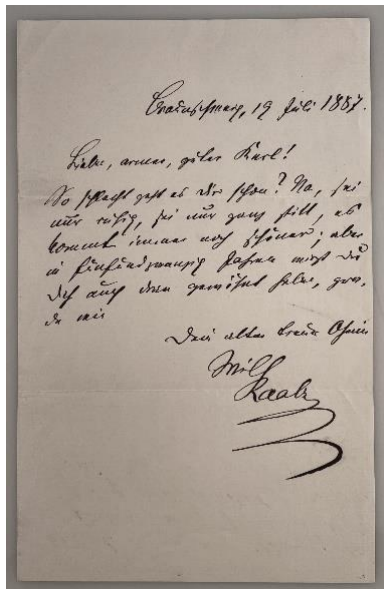 Braunschweig, 19 Juli 1887.
Lieber, armer, guter Karl!
So schlecht geht es Dir schon? Na, sei
nur ruhig, sei nur ganz still, es
kommt immer noch schöner; aber
in fünfundzwanzig Jahren wirst du
dich auch dran gewöhnt haben, gera-
de wie
Dein alter treuer Oheim
Wilh
Raabe